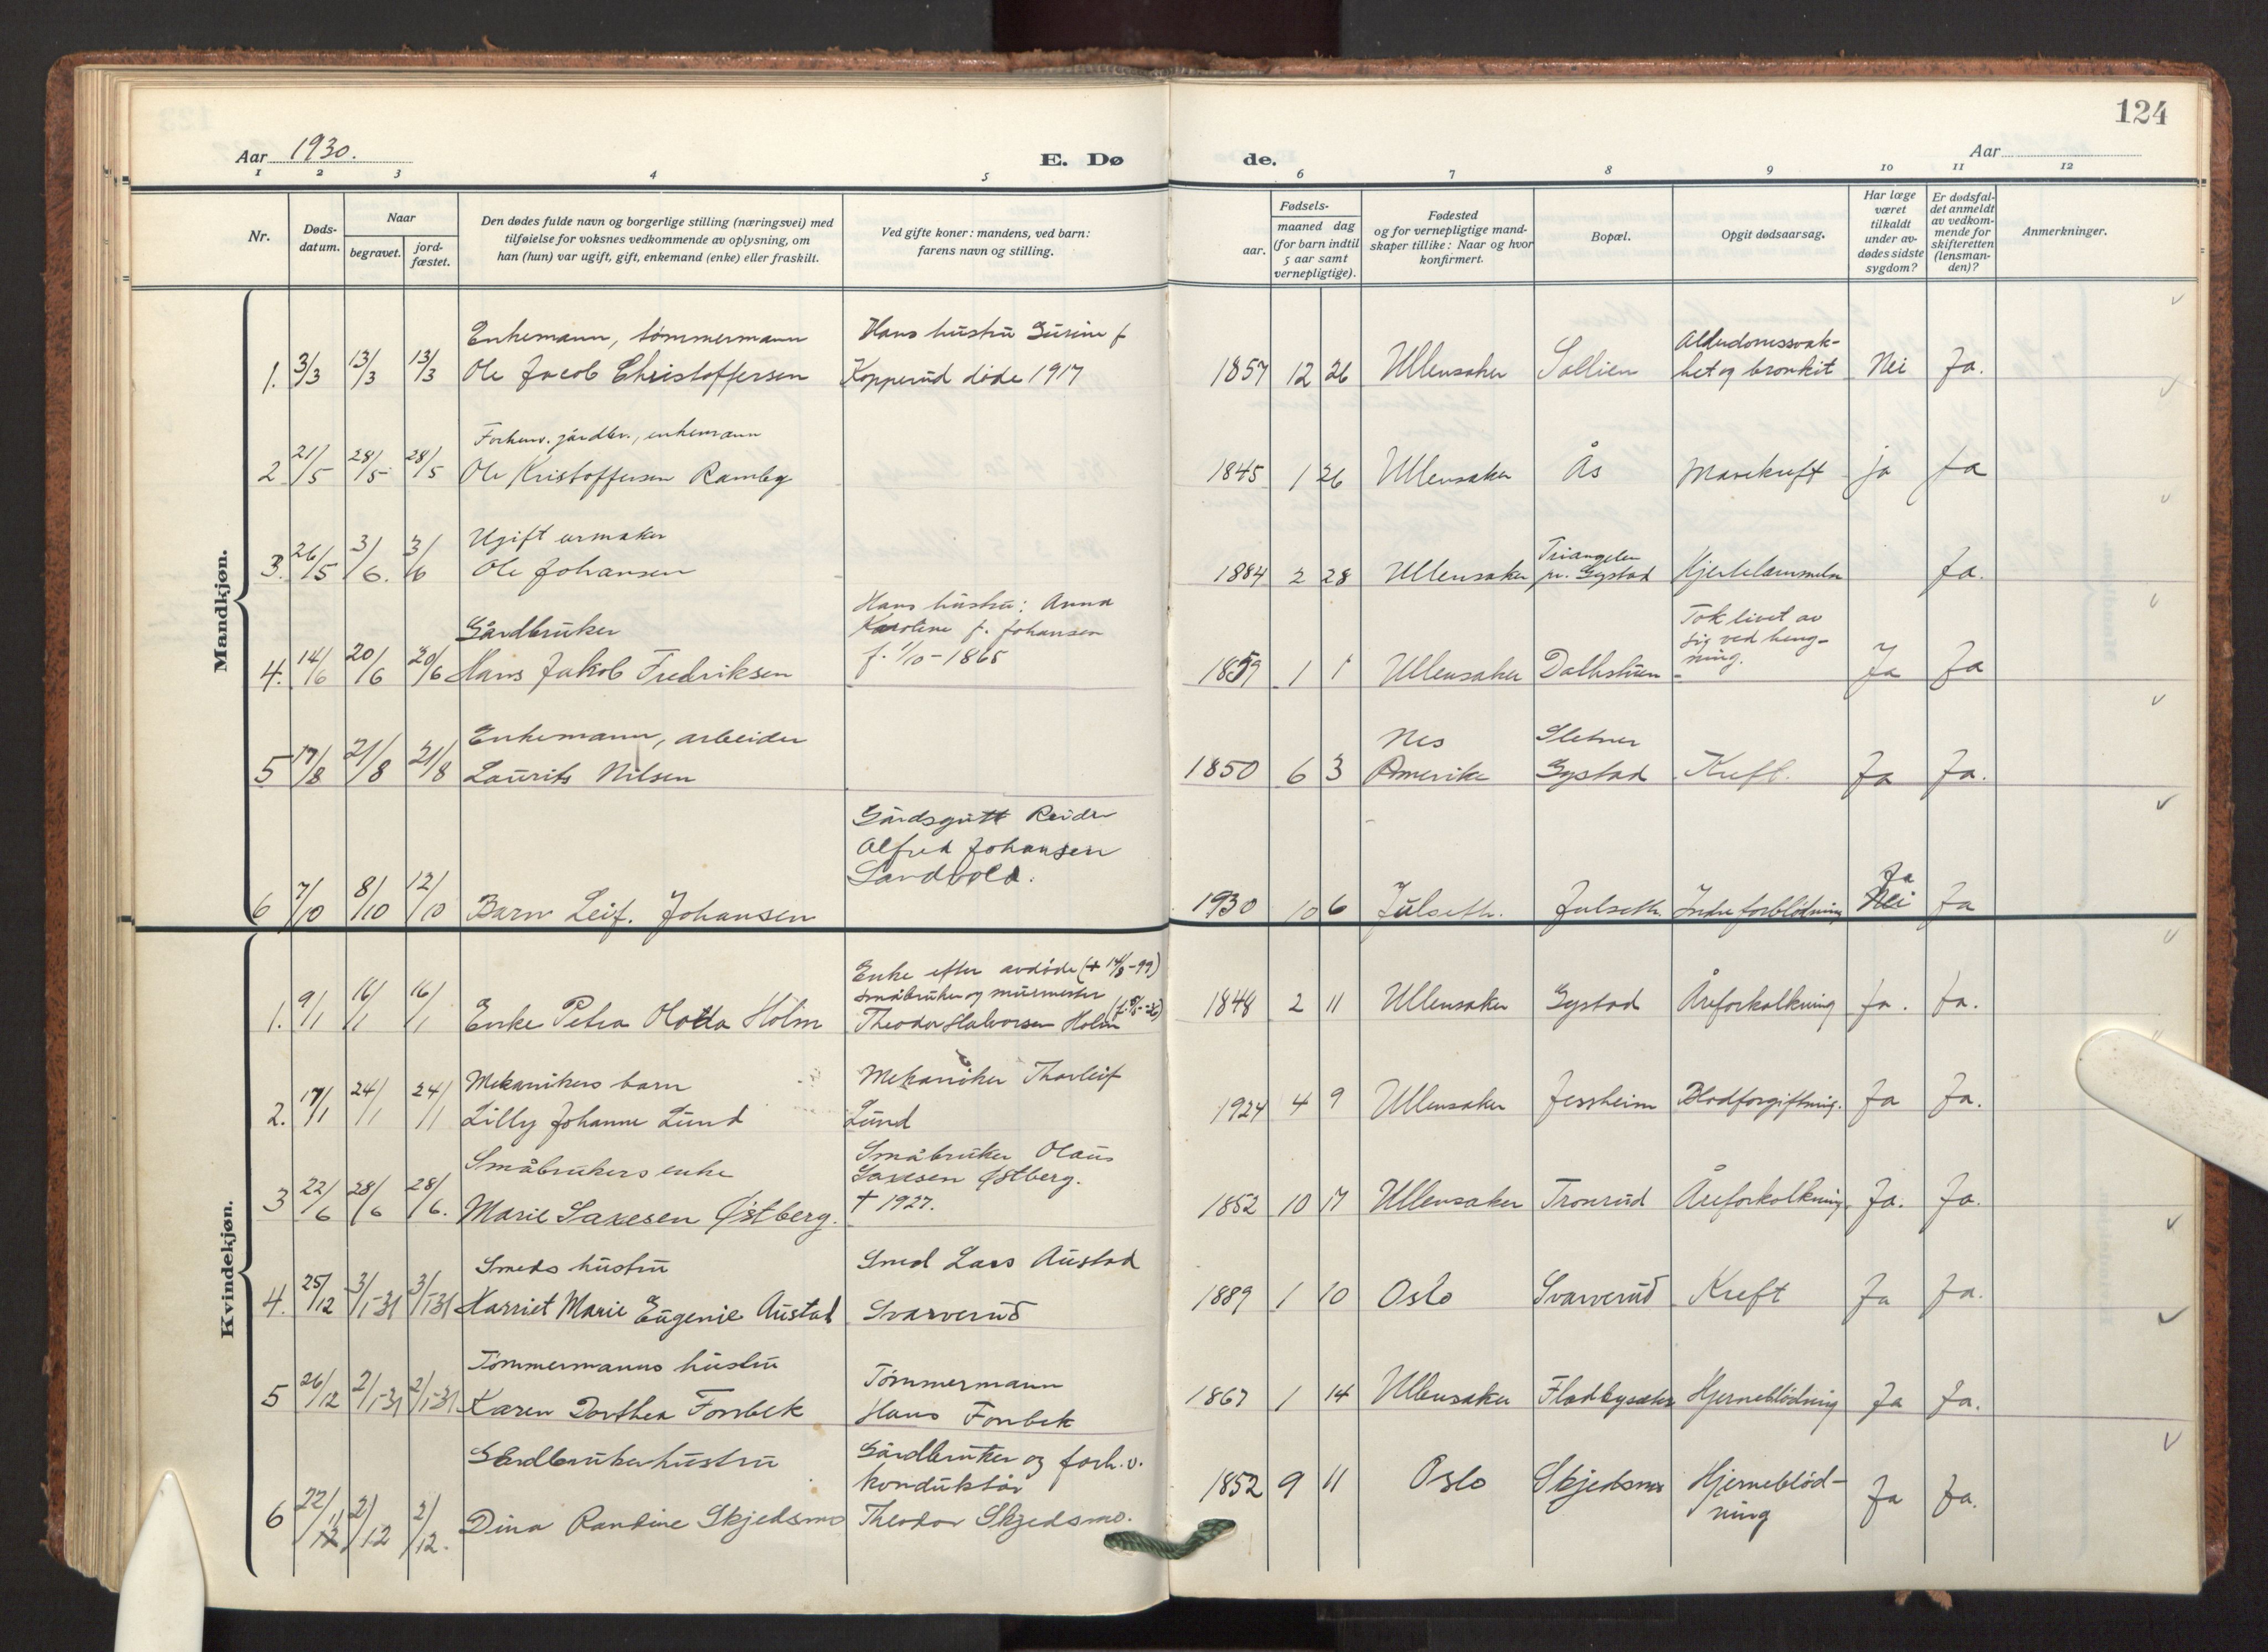 124
Aar 1930.
E. Dø
de.
Aar
1 2 3 4 5 6 7 8 9 10 11 12
Nr.
Døds-
datum.
Naar
begravet.
jord-
fæstet.
Den dødes fulde navn og borgerlige stilling (næringsvei) med
tilføielse for voksnes vedkommende av oplysning, om
han (hun) var ugift, gift, enkemand (enke) eller fraskilt.
Ved gifte koner: mandens, ved barn:
farens navn og stilling.
Fødsels-
aar.
maaned dag
(for barn indtil
5 aar samt
vernepligtige).
Fødested
og for vernepligtige mand-
skaper tillike: Naar og hvor
konfirmert.
Bopæl.
Opgit dødsaarsag.
Har læge
været
tilkaldt
under av-
dødes sidste
sygdom?
Er dødsfal-
det anmeldt
av vedkom-
mende for
skifteretten
(lensman-
den)?
Anmerkninger.
Mandkjøn.
Enkemann, tømmermann
Hans hustru Gurine f
Alderdomssvak-
1. 3/3 13/3 13/3 Ole Jacob Christoffersen Kopperud døde 1917 1857 12 26 Ullensaker Sollien het og bronkit Nei Ja.
Forhenv. gårdbr., enkemann
2 21/5 28/5 28/5 Ole Kristoffersen Ramberg 1845 1 26 Ullensaker Ås Mavekreft ja ja
Ugift urmaker
Triangelen
3. 26/5 3/6. 3/6 Ole Johansen 1884 2 28 Ullensaker pr. Gystad Hjertelammelse Ja.
Hans hustru: Anna
Karoline f. Johansen
f. 1/10-1865
Tok livet av
sig ved heng-
ning.
Gårdbruker
4. 14/6 20/6 20/6 Hans Jakob Fredriksen 1859 1 1 Ullensaker Dalhstuen Ja Ja
Enkemann, arbeider
Nes
Sletner
5 17/8 21/8 21/8 Laurits Nilsen 1850 6 3 Amerika Gystad Kreft. Ja Ja.
Gårdsgutt Reidar
Alfred Johansen
Sandvold.
Ja
6 7/10 8/10 12/10 Barn Leif. Johansen 1930 10 6 Julseth. Julseth. Indre forblödning Nei Ja
Kvindekjøn.
Enke efter avdøde (+ 14/8-99)
småbruker og murmester
1. 9/1 16/1 16/1 Enke Petra Holm Theodor Halvorsen Holm 1848 2 11 Ullensaker Gystad Åreforkalkning Ja. Ja.
Mekanikers barn
Mekaniker Thorleif
2. 17/1 24/1 24/1 Lilly Johanne Lund Lund 1924 4 9 Ullensaker Jessheim Blodforgiftning. Ja Ja.
Småbrukers enke
Småbruker Olaus
Saxesen Østberg.
3 22/6 28/6 28/6. Marie Saxesen Østberg. + 1927. 1852 10 17 Ullensaker Tronrud Åreforkalkning Ja. Ja.
Smeds hustru
Smed Lars Austad
4. 25/12 3/1-31 3/1-31 Harriet Marie Eugenie Austad Svarverud 1889 1 10 Oslo Svarverud Kreft Ja Ja.
Tømmermanns hustru
Tømmermann
5 26/12 2/1-31 2/1-31 Karen Dorthea Fonbek Hans Fonbek 1867 1 14 Ullensaker Hjerneblödning Ja Ja.
Gårdbrukerhustru
Gårdbruker og forh.v.
konduktør
6 22/11 2/12 2/12. Dina Randine Skjedsmo Theodor Skjedsmo. 1852 9 11 Oslo Skjedsmo Hjerneblöd-
ning Ja Ja.